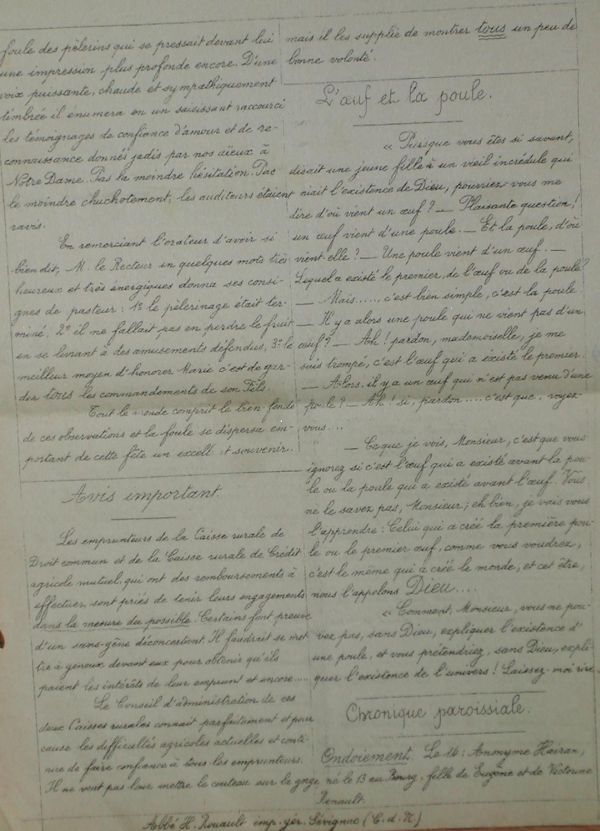 foule des pèlerins qui se pressait devant lui
une impression plus profonde encore. D'une
voix puissante, chaude et sympathiquement
timbrée il énuméra en un saisissant raccourci
les témoignages de confiance d'amour et de re-
connaissance donnés jadis par nos aïeux à
Notre Dame. Pas la moindre hésitation. Pas
le moindre chuchotement, les auditeurs étaient
ravis.
En remerciant l'orateur d'avoir si
bien dit, M. le Recteur en quelques mots très
heureux et très énergiques donna ses consi-
gnes de pasteur : 1º le pèlerinage était ter-
miné. 2º il ne fallait pas en perdre le fruit
en se livrant à des amusements défendus. 3º le
meilleur moyen d'honorer Marie c'est de gar-
der tous les commandements de son Fils.
Tout le monde comprit le bien fondé
de ces observations et la foule se dispersa em-
portant de cette fête un excellent souvenir.
Avis important.
Les emprunteurs de la Caisse rurale de
Droit commun et de la Caisse rurale de Crédit
agricole mutuel, qui ont des remboursements à
effectuer, sont priés de tenir leurs engagements
dans la mesure du possible. Certains font preuve
d'un sans-gêne déconcertant. Il faudrait se met
tre à genoux devant eux pour obtenir qu'ils
paient les intérêts de leur emprunt et encore....
Le Conseil d'administration de ces
deux Caisses rurales connaît parfaitement et pour
cause les difficultés agricoles actuelles et conti-
nue de faire confiance à tous les emprunteurs.
Il ne veut pas leur mettre le couteau sur la gorge
mais il les supplie de montrer tous un peu de
bonne volonté.
L'œuf et la poule.
« Puisque vous êtes si savant,
disait une jeune fille à un vieil incrédule qui
niait l'existence de Dieu, pourriez-vous me
dire d'où vient un œuf ? — Plaisante question !
un œuf vient d'une poule. — Et la poule, d'où
vient-elle ? — Une poule vient d'un œuf. —
Lequel a existé le premier, de l'œuf ou de la poule ?
— Mais....., c'est bien simple, c'est la poule
— Il y a alors une poule qui ne vient pas d'un
œuf ? — Ah ! pardon, mademoiselle, je me
suis trompé, c'est l'œuf qui a existé le premier.
— Alors, il y a un œuf qui n'est pas venu d'une
poule ? — Ah ! si, pardon.... c'est que.. voyez-
vous...
— Ce que je vois, Monsieur, c'est que vous
ignorez si c'est l'œuf qui a existé avant la pou-
le ou la poule qui a existé avant l'œuf. Vous
ne le savez pas, Monsieur ; eh bien, je vais vous
l'apprendre : Celui qui a créé la première pou-
le ou le premier œuf, comme vous voudrez,
c'est le même qui a créé le monde, et cet être,
nous l'appelons Dieu....
« Comment, Monsieur, vous ne pou-
vez pas, sans Dieu, expliquer l'existence d'
une poule, et vous prétendriez, sans Dieu, expli-
quer l'existence de l'univers ! Laissez-moi rire.
Chronique paroissiale.
Ondoiement. Le 16 : Anonyme Hairan,
né le 13 au Bourg, fille de Eugène et de Victorine
Renault.
Abbé H. Rouault imp. gér. Sévignac (C. d. N.)